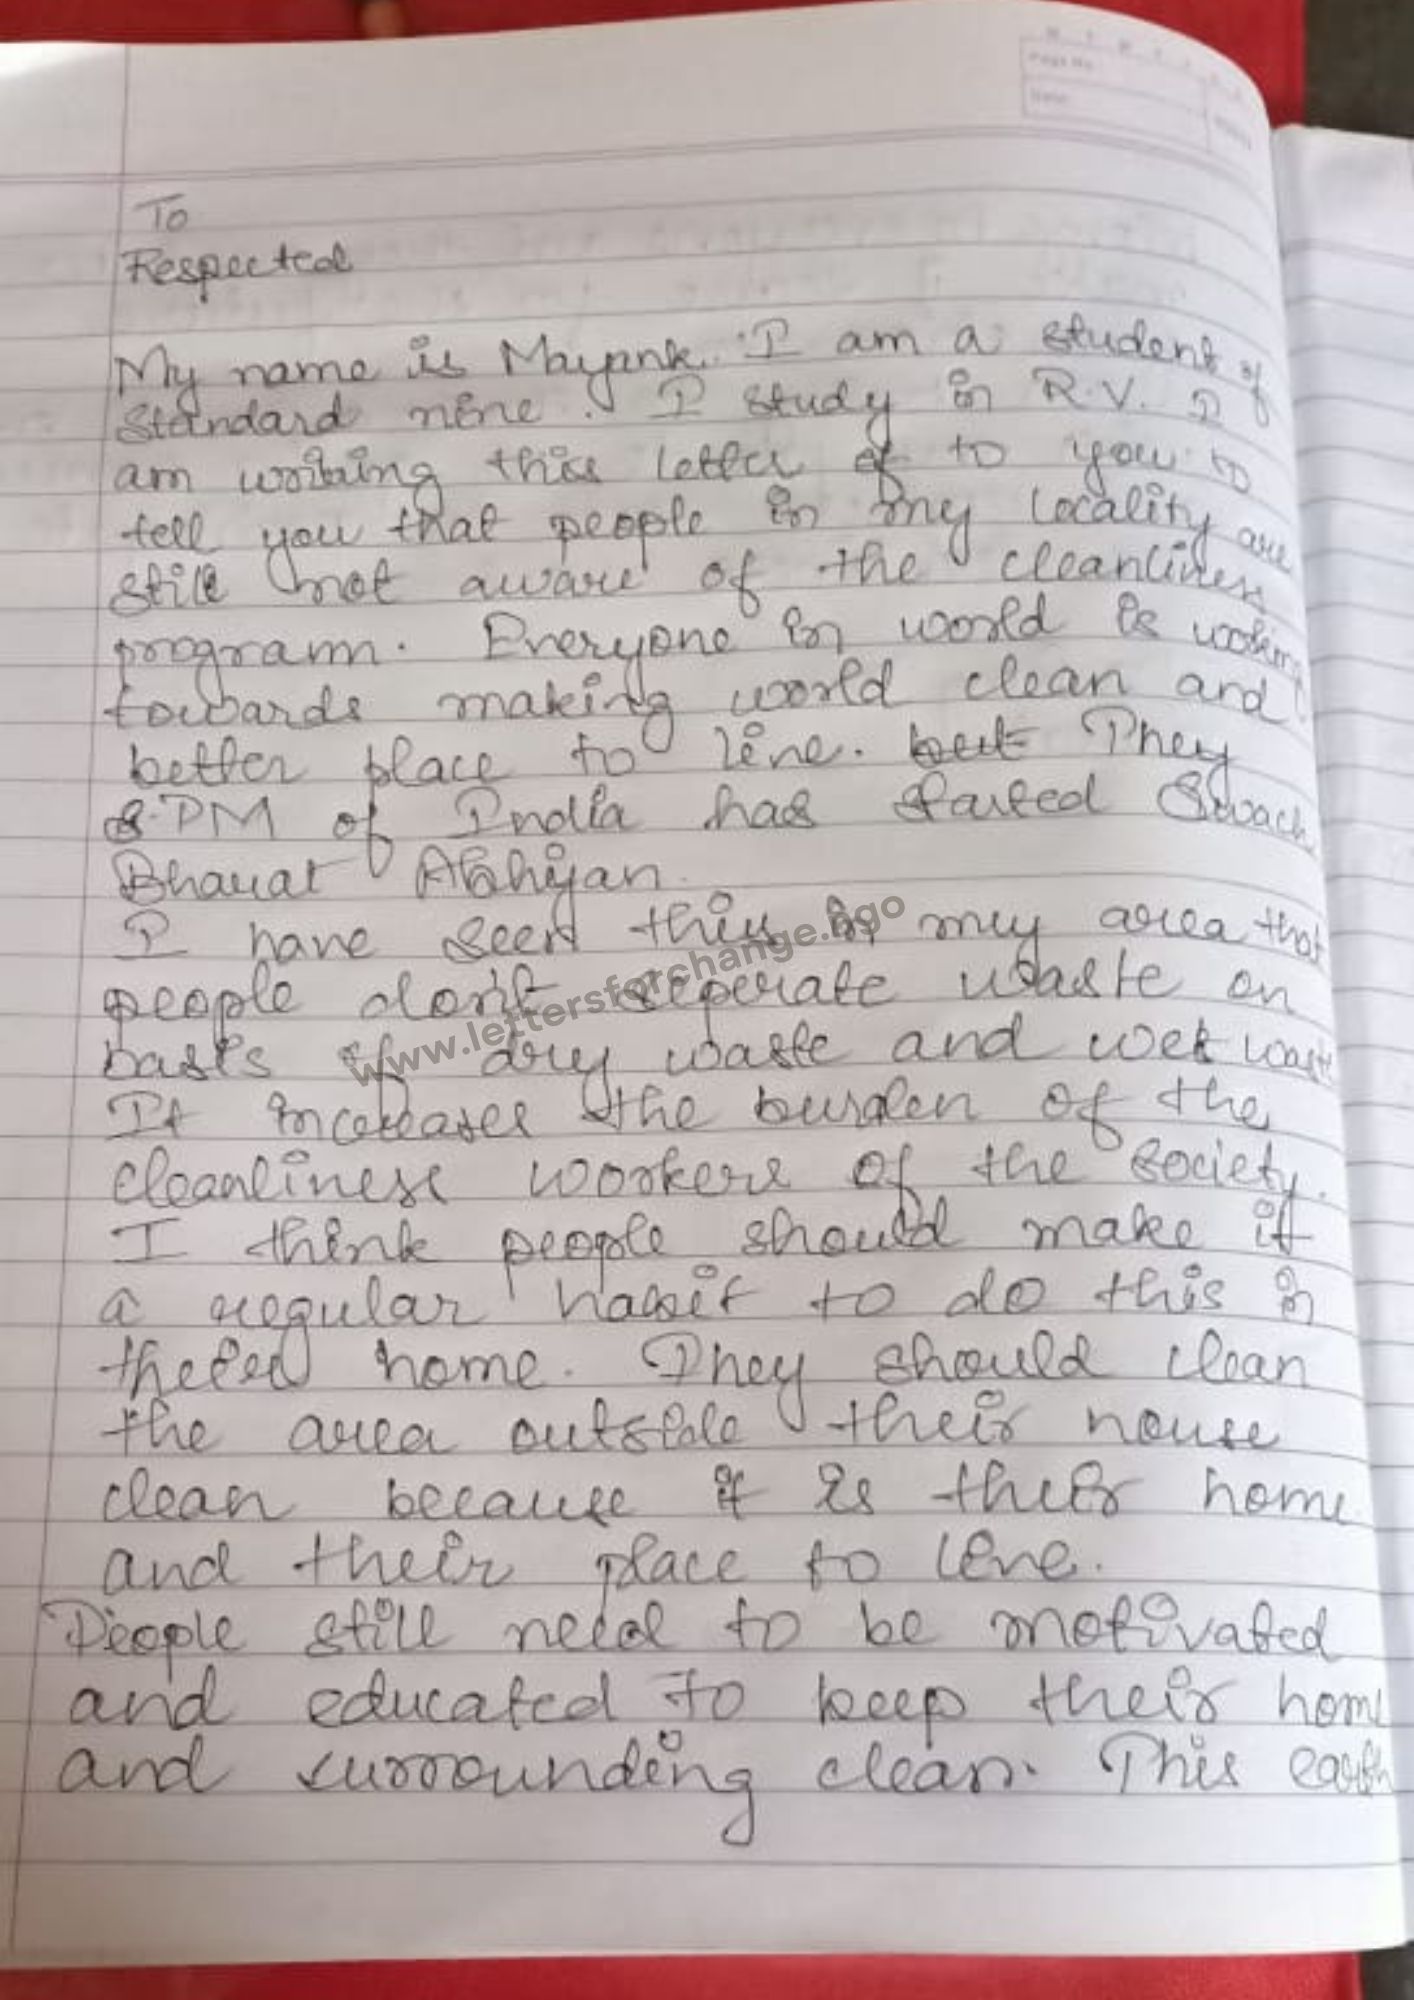 Page No.
Date
To
Respected
My name is Mayank. I am a student of
standard nine. I study in R.V. I
am writing this letter of to you to
tell you that people in my locality are
still not aware of the cleanliness
program. Everyone in world is working
towards making world clean and
better place to live. but They
PM of India has started Swach
Bharat Abhiyan.
I have seen this in my area that
people don't seperate waste on
basis of dry waste and wet waste
It increases the burden of the
cleanliness workers of the society.
I think people should make it
a regular habit to do this in
their home. They should clean
the area outside their house
clean because it is their home
and their place to live.
People still need to be motivated
and educated to keep their home
and surrounding clean. This earth
www.lettersforchange.ngo